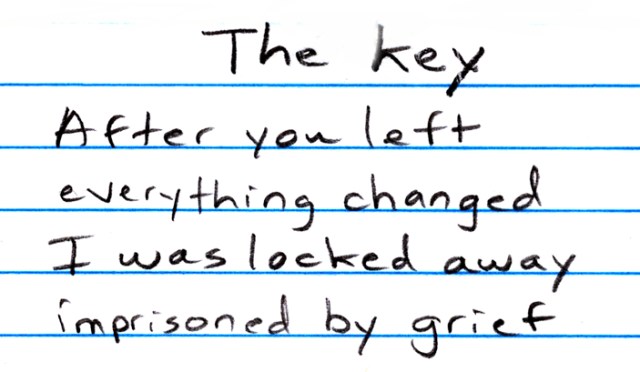 The key
After you left
everything changed
I was locked away
imprisoned by grief